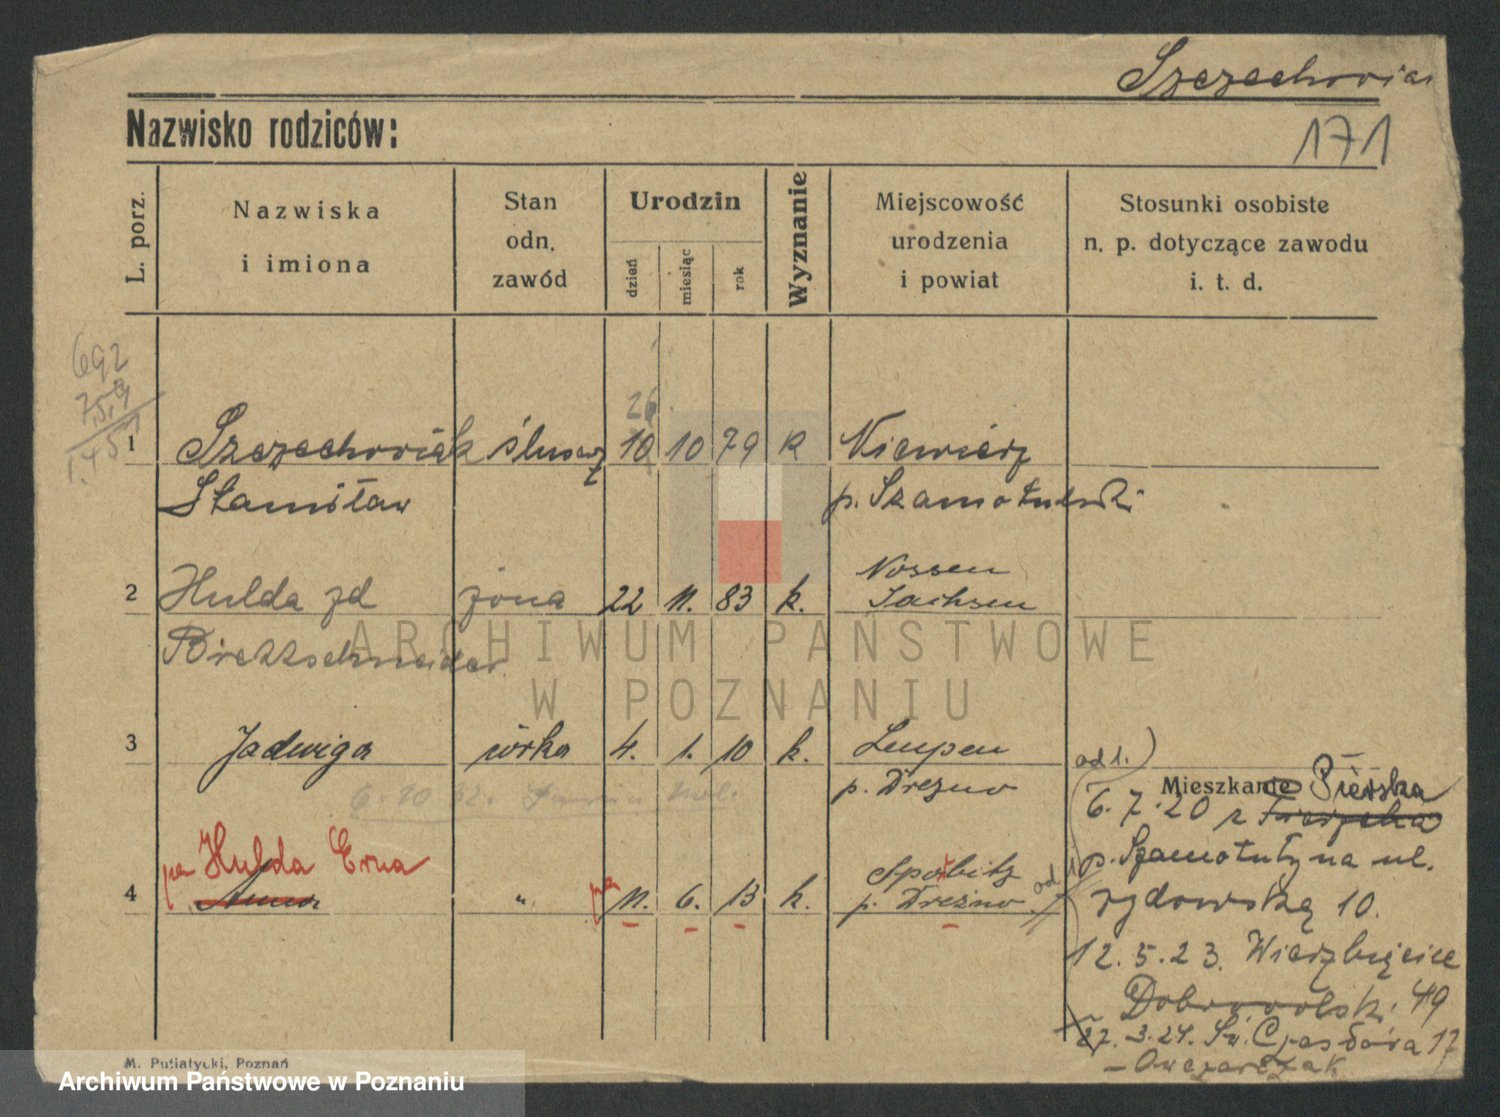 Szczechowiak
171
Nazwisko rodziców:
L. porz.
Nazwiska
i imiona
Stan
odn.
zawód
Urodzin
dzień
miesiąc
rok
Wyznanie
Miejscowość
urodzenia
i powiat
Stosunki osobiste
n. p. dotyczące zawodu
i. t. d.
692
759
1451
26
1 Szczechowiak ślusarz 10 10 79 k Niewierz
Stanisław p. Szamotulski
Nossen
2 Hulda zd żona 22 11. 83 k. Sachsen
Bretschneider
ARCHIWUM PAŃSTWOWE
W POZNANIU
3 Jadwiga córka 4. 1. 10 k. Leupen
p. Drezno
6.10 32.
od 1.)
Mieszkanie Pierska
6.7.20 z
p. Szamotuły na ul.
pa Hulda Erna
4 " pa 11. 6. 13 k. Spotbitz
p. Drezno
od 1
Żydowską 10.
12.5.23. Wierzbięcice
Dobrowolski 49
27.3.24. Św. Czesława 17
– Owczarczak
M. Putiatycki, Poznań
Archiwum Państwowe w Poznaniu